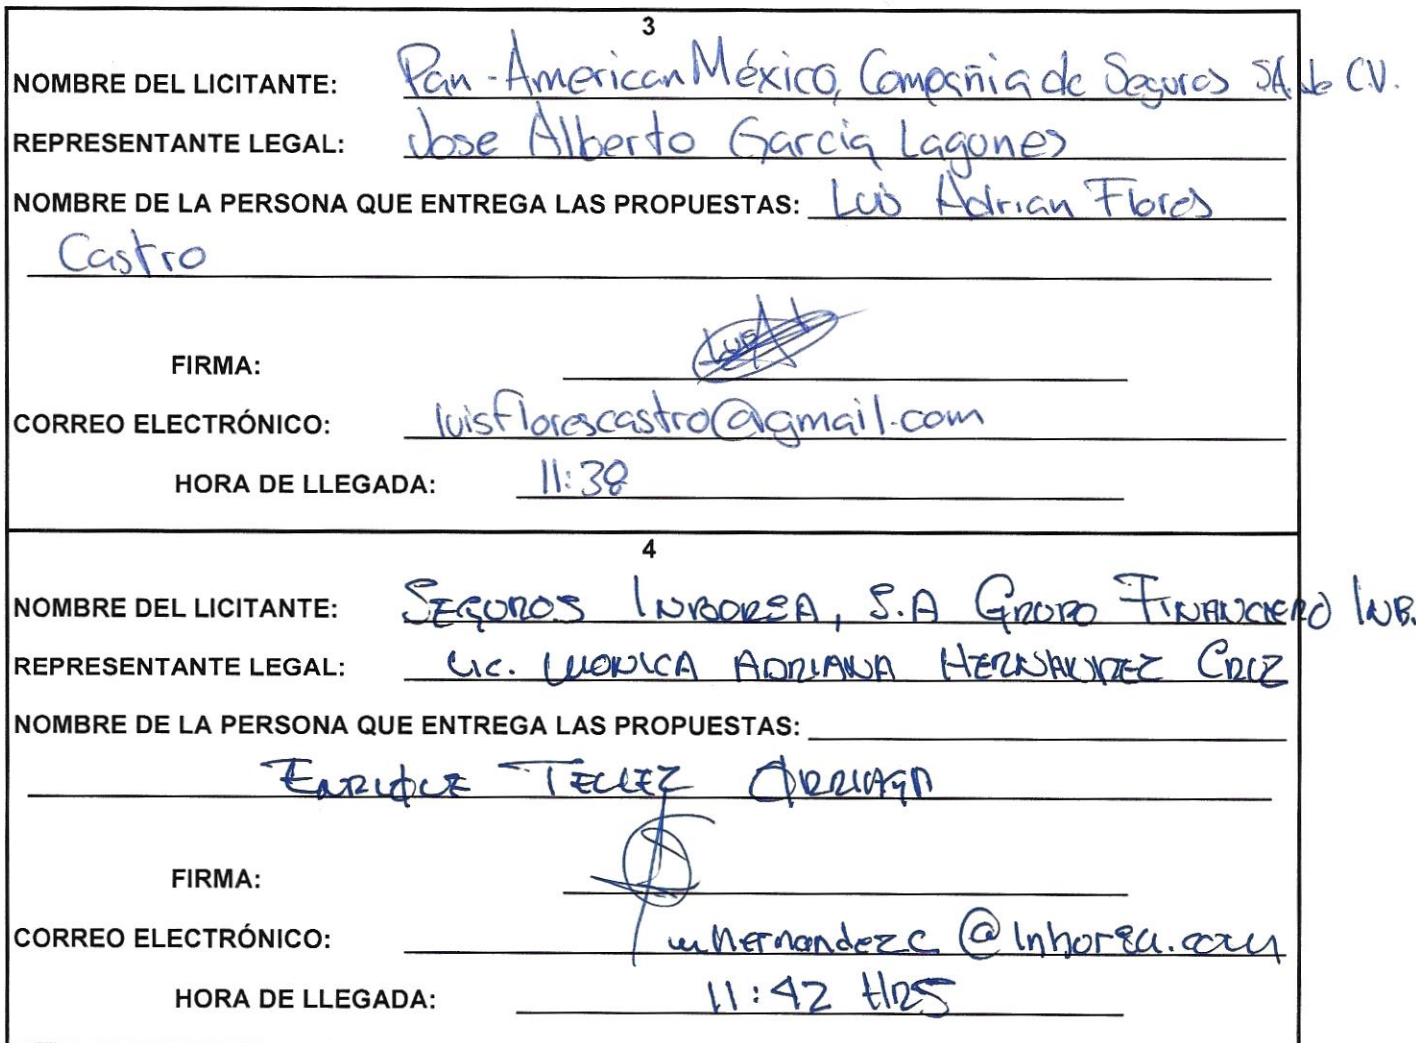 3
NOMBRE DEL LICITANTE: Pan-American México, Compañia de Seguros SA. de C.V.
REPRESENTANTE LEGAL: Jose Alberto Garcia Lagones
NOMBRE DE LA PERSONA QUE ENTREGA LAS PROPUESTAS: Luis Adrian Flores
Castro
FIRMA:
CORREO ELECTRÓNICO: luisflorescastro@gmail.com
HORA DE LLEGADA: 11:38
4
NOMBRE DEL LICITANTE: SEGUROS INBURSA, S.A GRUPO FINANCIERO INB.
REPRESENTANTE LEGAL: LIC. MONICA ADRIANA HERNANDEZ CRUZ
NOMBRE DE LA PERSONA QUE ENTREGA LAS PROPUESTAS:
ENRIQUE TELLEZ ARRIAGA
FIRMA:
CORREO ELECTRÓNICO: mhernandezc@inbursa.com
HORA DE LLEGADA: 11:42 HRS